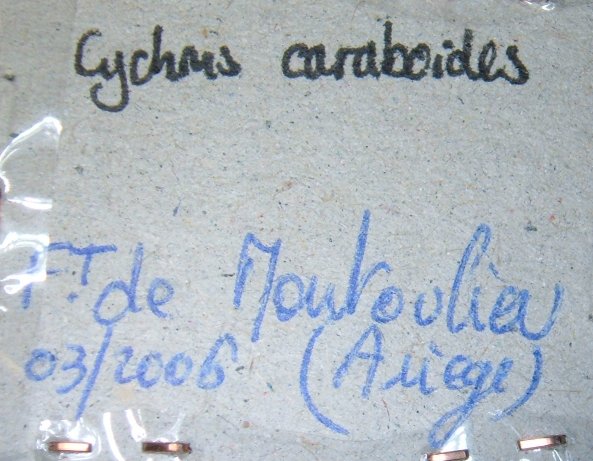 Cychrus caraboides
F.T de Montoulieu
03/2006 (Ariege)